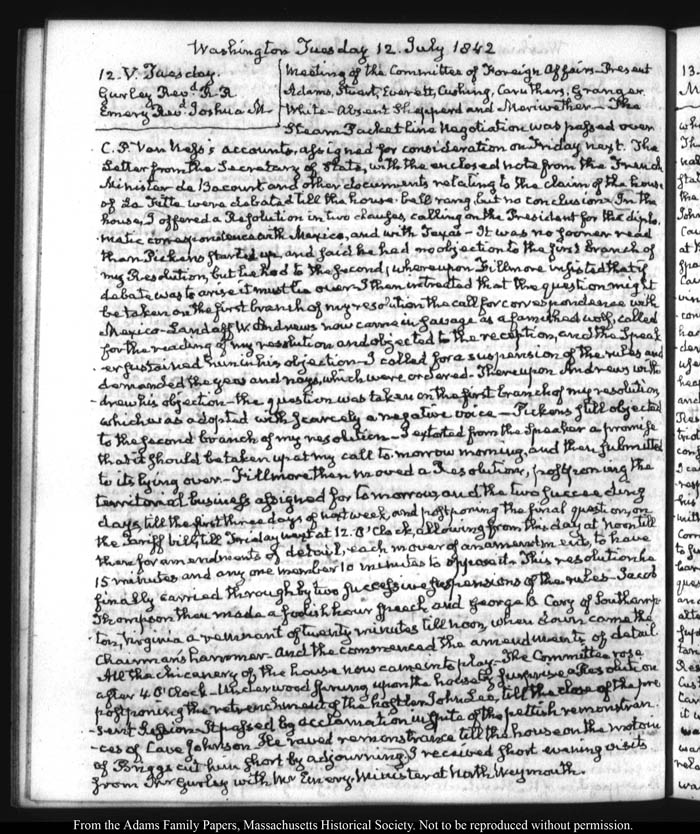 Washington Tuesday 12. July 1842
12. V. Tuesday.
Gurley Revd. R. R
Emery Revd. Joshua M.
Meeting of the Committee of Foreign Affairs — Present
Adams, Stuart, Everett, Cushing, Caruthers, Granger
White — Absent Shepperd and Meriwether — The
Steam Packet line Negotiation was passed over
C. P. Van Ness's accounts, assigned for consideration on Friday next. The
Letter from the Secretary of State, with the enclosed note from the French
Minister de Bacourt and other documents relating to the claim of the house
of La Fitte were debated till the house-bell rang, but no conclusion. In the
house, I offered a Resolution in two clauses, calling on the President for the diplo
matic correspondence with Mexico, and with Texas — It was no sooner read
than Pickens started up, and said he had no objection to the first branch of
my Resolution, but he had to the second; whereupon Fillmore insisted that if
debate was to arise it must lie over. I then intreated that the question might
be taken on the first branch of my resolution the call for correspondence with
Mexico — Landaff W. Andrews now came in savage as a famished wolf, called
for the reading of my resolution and objected to the reception, and the Speak
er sustained him in his objection — I called for a suspension of the rules and
demanded the yeas and nays, which were ordered — Thereupon Andrews with
drew his objection — the question was taken on the first branch of my resolution,
which was adopted with scarcely a negative voice — Pickens still objected
to the second branch of my resolution — I extorted from the Speaker a promise
that it should be taken up at my call to-morrow morning, and then submitted
to its lying over — Fillmore then moved a Resolution, postponing the
territorial business assigned for to-morrow and the two succeeding
days, till the first three days of next week, and postponing the final question, on
the Tariff bill, till Friday next at 12. O'Clock, allowing from this day at Noon till
then for amendments of detail, each mover of an amendment, to have
15 minutes and any one member 10 minutes to oppose it. This resolution he
finally carried through by two successive suspensions of the rules. Jacob
Thompson then made a foolish hour speech and George B Cary of Southamp
ton, Virginia a remnant of twenty minutes till noon, when down came the
Chairman's hammer — And then commenced the amendments of detail.
All the chicanery of the house now came into play — The Committee rose
after 4 O'Clock — Underwood sprung upon the house by surprise a Resolution
postponing the retrenchment of the hostler John Lee, till the close of the pre
sent Session — It passed by acclamation in spite of the pettish remonstran
ces of Cave Johnson. He raved remonstrance till the house on the motion
of Briggs cut him short by adjourning. I received short evening visits
from Mr Gurley with Mr Emery, Minister at North Weymouth.
From the Adams Family Papers, Massachusetts Historical Society. Not to be reproduced without permission.